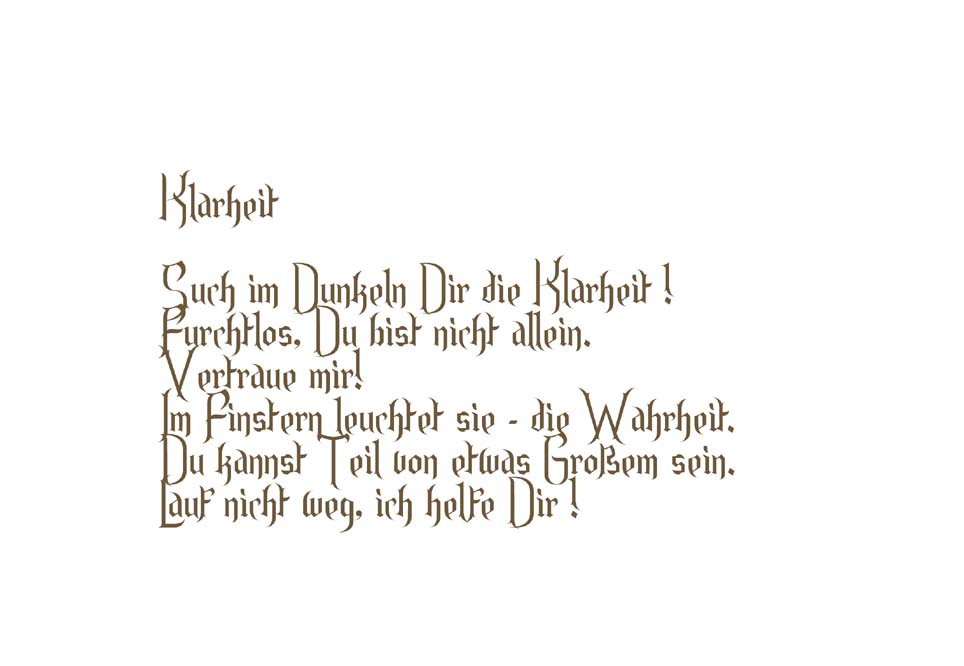 Klarheit
Such im Dunkeln Dir die Klarheit !
Furchtlos, Du bist nicht allein.
Vertraue mir!
Im Finstern leuchtet sie - die Wahrheit.
Du kannst Teil von etwas Großem sein.
Lauf nicht weg, ich helfe Dir !